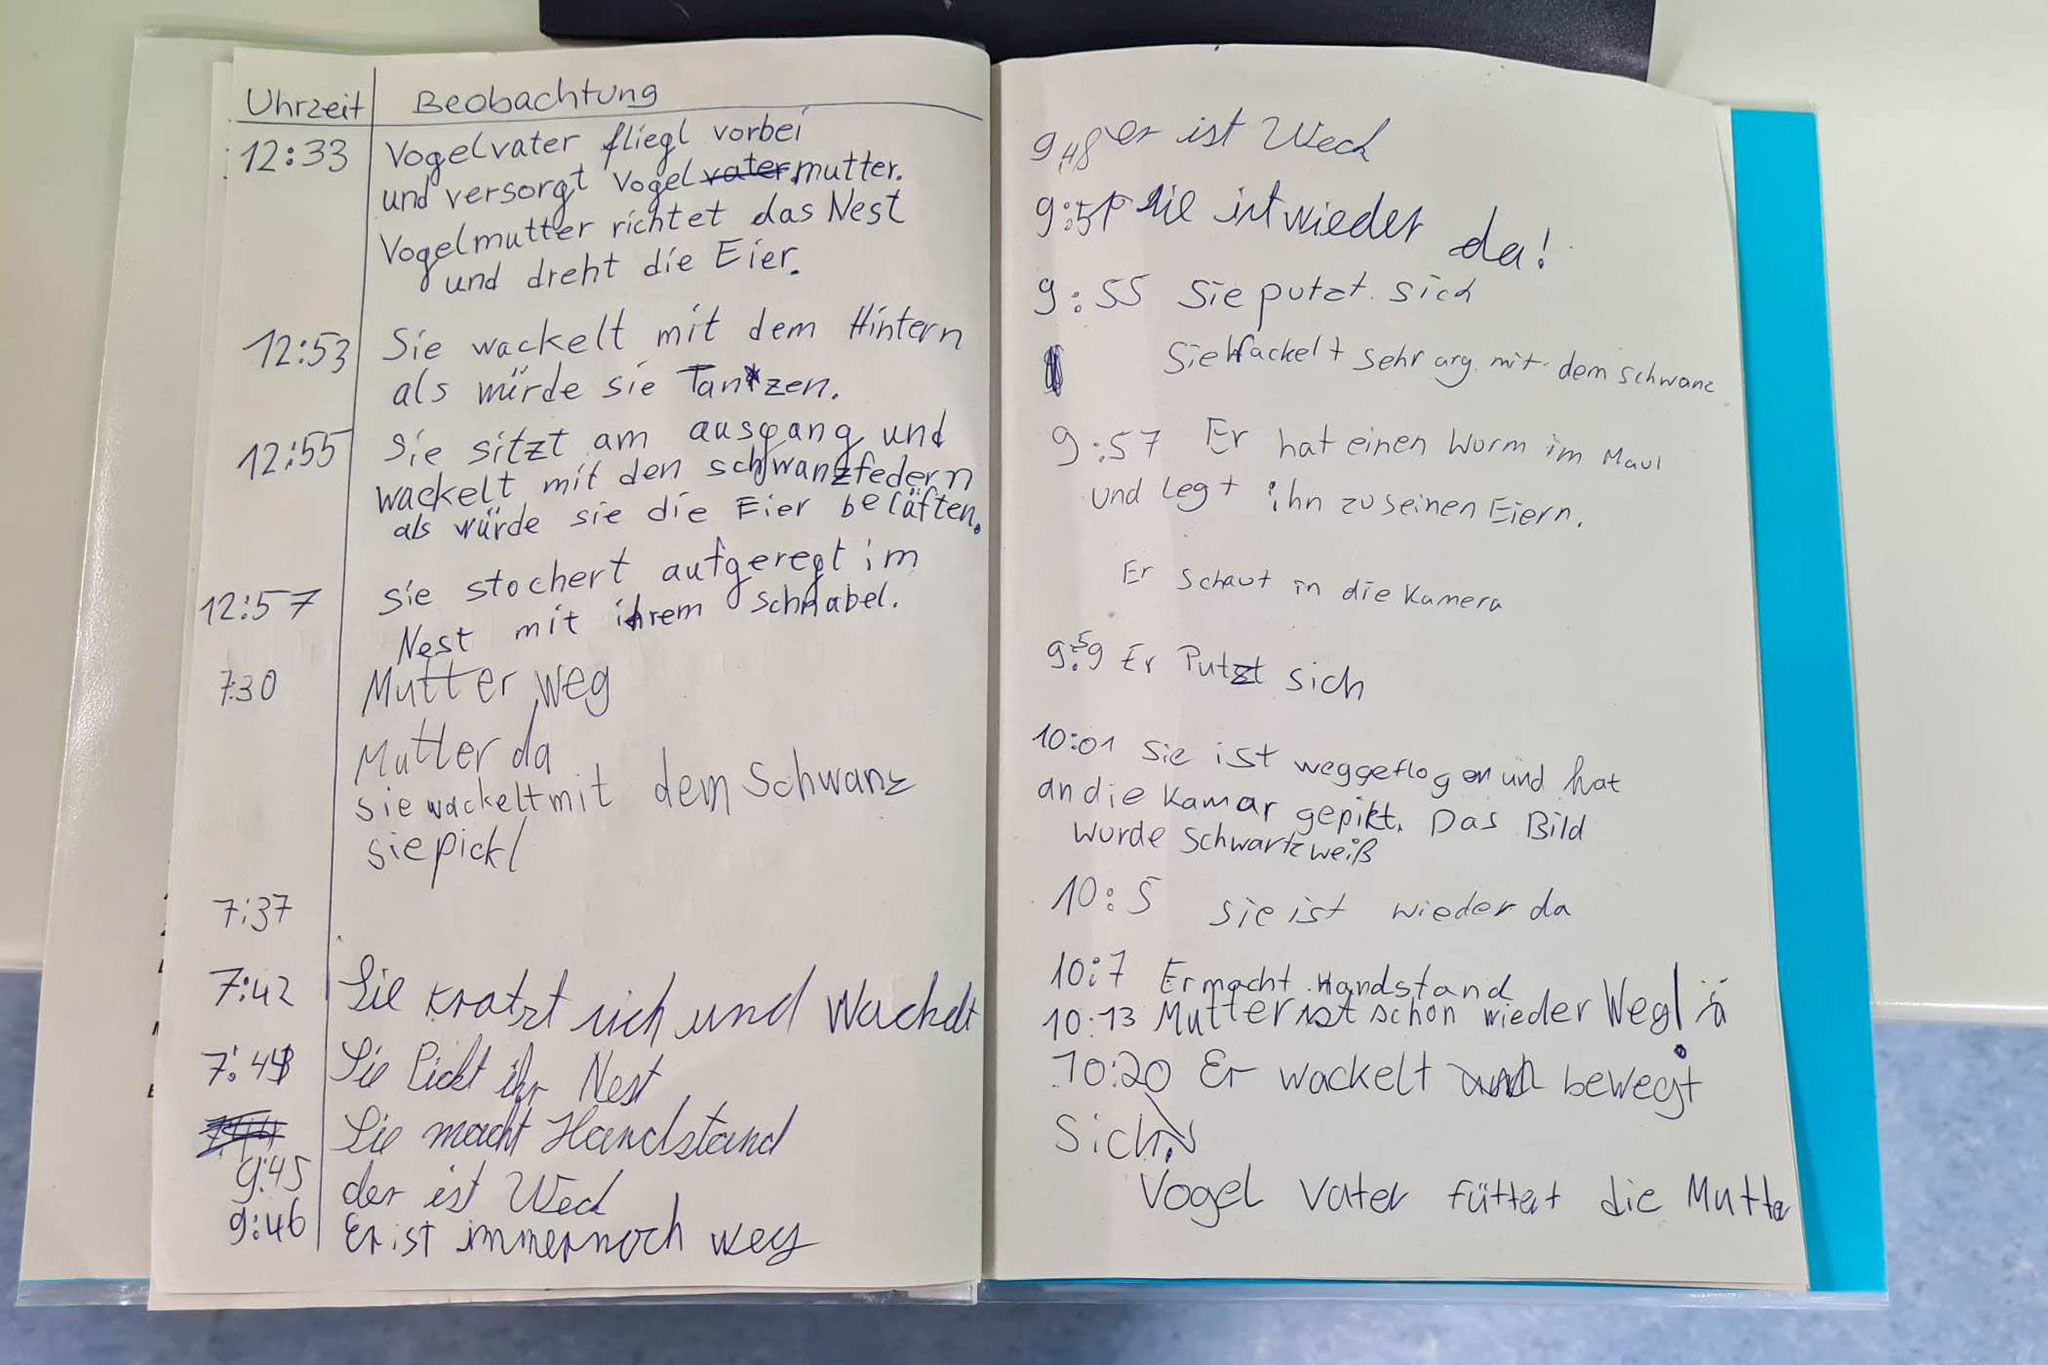 Uhrzeit Beobachtung
12:33 Vogelvater fliegt vorbei
und versorgt Vogel vater mutter.
Vogelmutter richtet das Nest
und dreht die Eier.
12:53 Sie wackelt mit dem Hintern
als würde sie Tanzen.
12:55 Sie sitzt am ausgang und
wackelt mit den schwanzfedern
als würde sie die Eier belüften.
12:57 Sie stochert aufgeregt im
Nest mit ihrem Schnabel.
7:30 Mutter weg
Mutter da
sie wackelt mit dem Schwanz
sie pickt
7:37
7:42 Sie kratzt sich und wackelt
7:43 Sie Pickt ihr Nest
Sie macht Handstand
9:45 der ist Weck
9:46 Er ist immernoch weg
9:48 er ist Weck
9:51 sie ist wieder da!
9:55 Sie putzt sich
Sie Wackelt sehr arg mit dem schwanz
9:57 Er hat einen Worm im Maul
und Legt ihn zu seinen Eiern.
Er Schaut in die Kamera
9:59 Er Putzt sich
10:01 Sie ist weggeflogen und hat
an die Kamar gepikt. Das Bild
wurde Schwartzweiß
10:5 Sie ist wieder da
10:7 Er macht Handstand
10:13 Mutter ist schon wieder Weg! ä
10:20 Er wackelt und bewegt
sich.
Vogel Vater füttert die Mutter